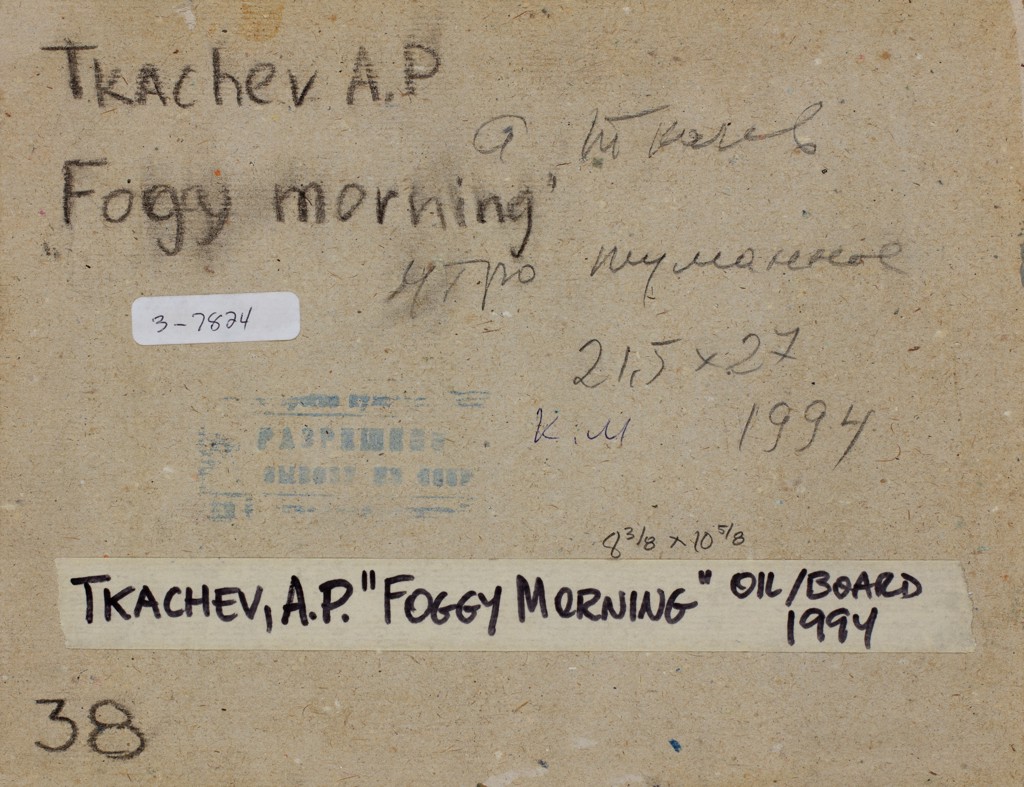 Tkachev A.P
а Ткачев
„Fogy morning"
Утро туманное
3-7824
21,5 x 27
РАЗРЕШЕНО
ВЫВОЗУ ИЗ СССР
К.М 1994
8 3/8 x 10 5/8
TKACHEV, A.P. "FOGGY MORNING" OIL/BOARD
1994
38